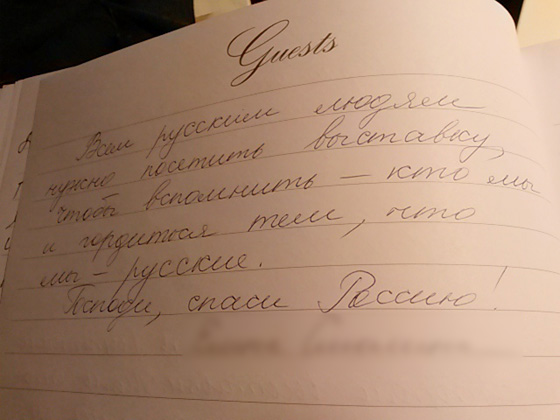 Guests
Всем русским людям
нужно посетить выставку,
чтобы вспомнить — кто мы
и гордиться тем, что
мы — русские.
Господи, спаси Россию!